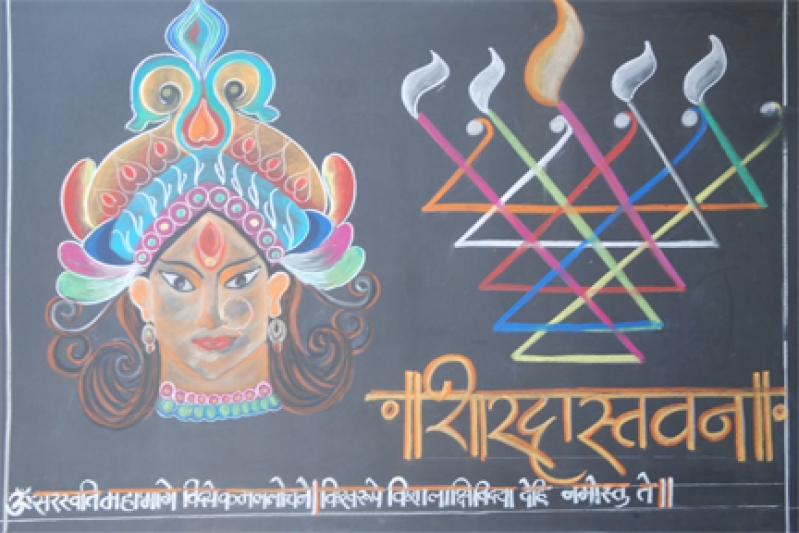 ॥शारदास्तवन॥
ॐ सरस्वति महाभागे विद्ये कमललोचने। विश्वरूपे विशालाक्षि विद्या देहि नमोस्तु ते॥